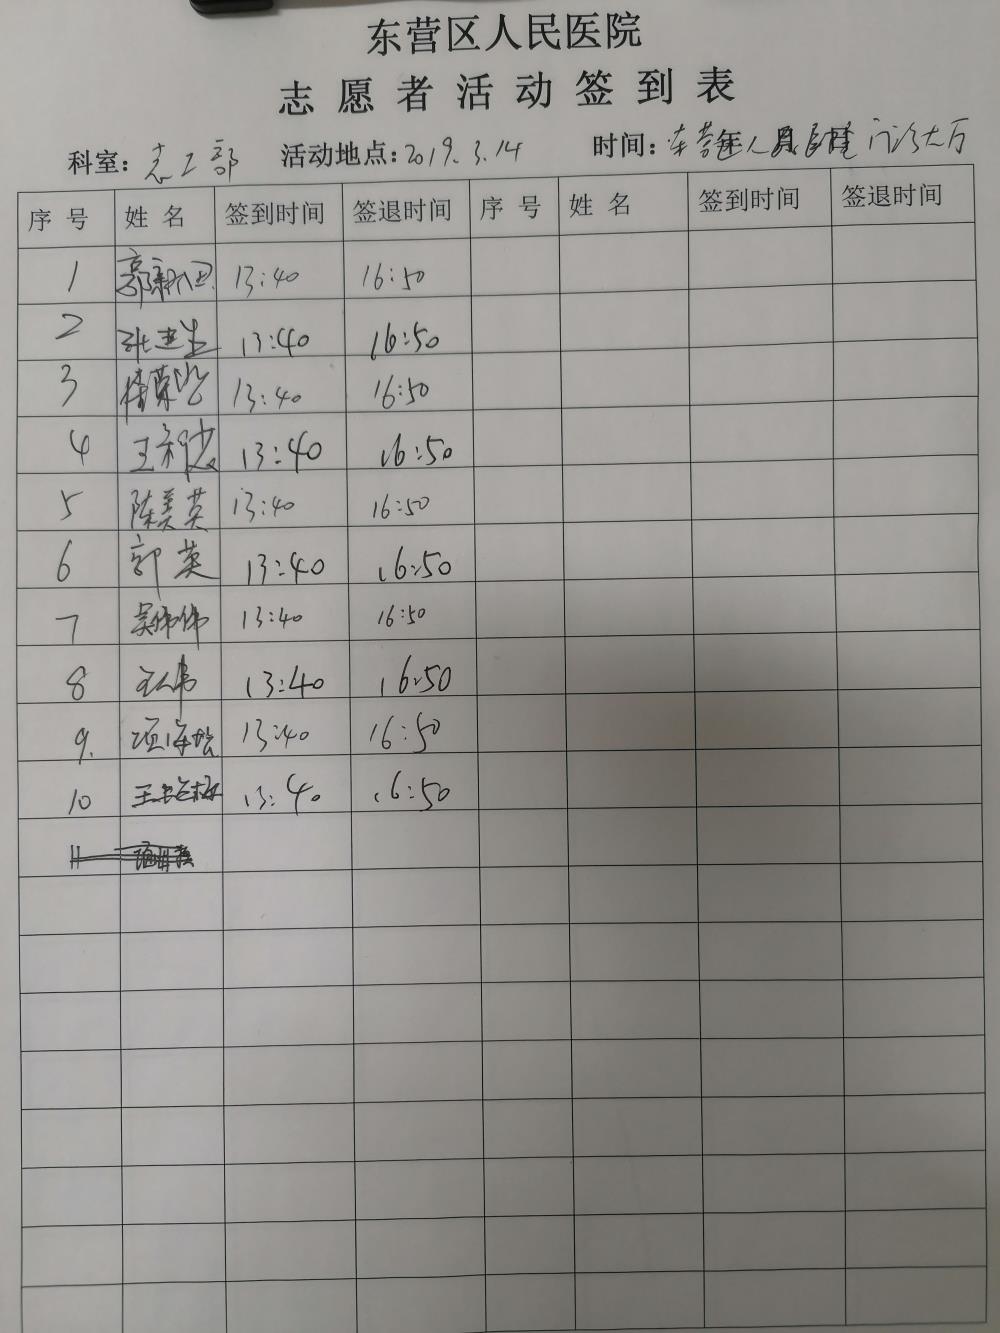 东营区人民医院
志愿者活动签到表
科室：志工部 活动地点：2019.3.14 时间：东营区人民医院门诊大厅
序号 姓名 签到时间 签退时间 序号 姓名 签到时间 签退时间
1 13:40 16:50
2 13:40 16:50
3 13:40 16:50
4 王 13:40 16:50
5 陈美英 13:40 16:50
6 郭英 13:40 16:50
7 吴伟伟 13:40 16:50
8 王伟 13:40 16:50
9. 项 13:40 16:50
10 王 13:40 16:50
11